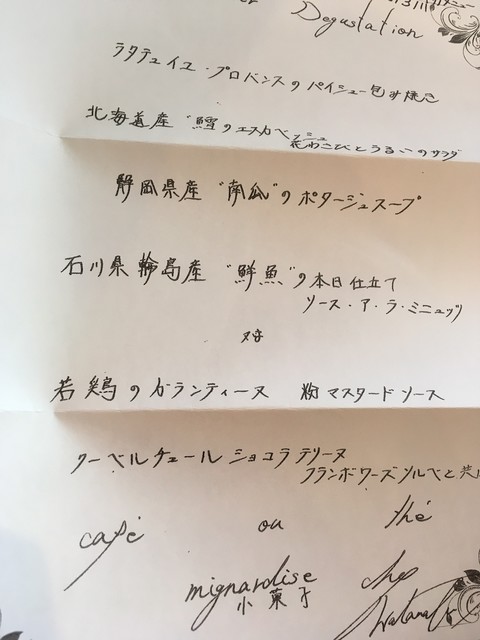 Degustation
ラタテュイユ・プロバンスのパイシュー包み焼き
北海道産 “鱈”のエスカベッシュ
花わさびとうるいのサラダ
静岡県産 “南瓜”のポタージュスープ
石川県輪島産 “鮮魚”の本日仕立て
ソース・ア・ラ・ミニュッツ
若鶏のガランティーヌ 粒マスタードソース
クーベルチュールショコラテリーヌ
フランボワーズソルベと共に
café ou thé
mignardise
小菓子